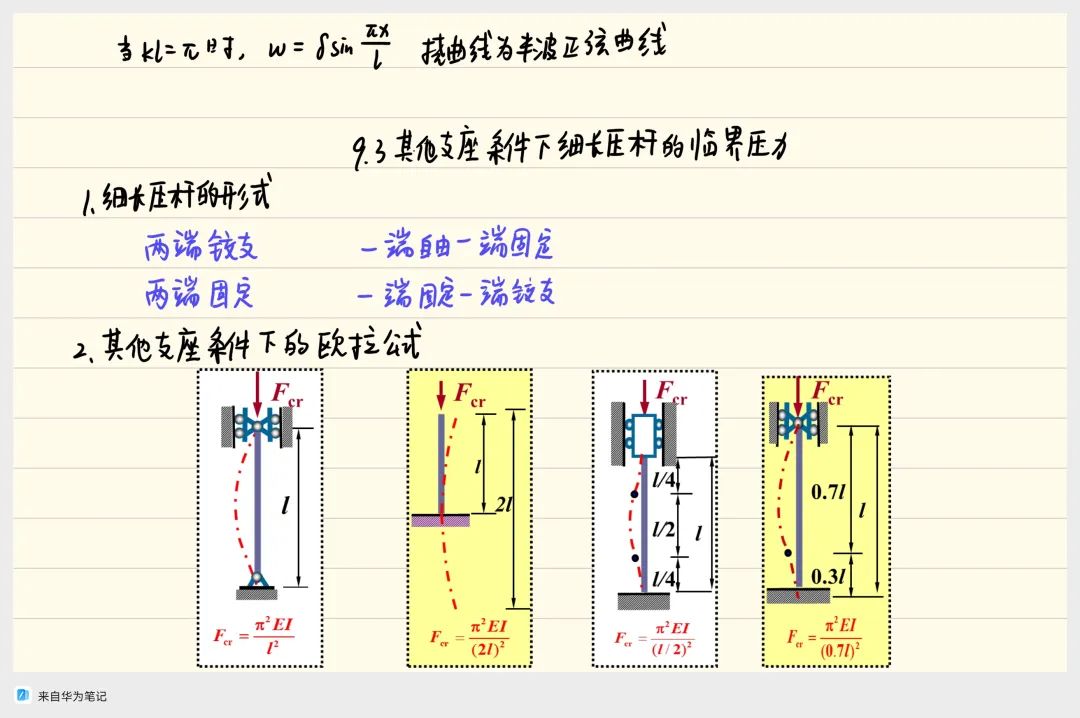 当kl=π时, w=δsin πx/l 挠曲线为半波正弦曲线
9.3 其他支座条件下细长压杆的临界压力
1.细长压杆的形式
两端铰支 一端自由一端固定
两端固定 一端固定一端铰支
2.其他支座条件下的欧拉公式
Fcr
l
Fcr = π²EI/l²
Fcr
l
2l
Fcr = π²EI/(2l)²
Fcr
l/4
l/2
l
l/4
Fcr = π²EI/(l/2)²
Fcr
0.7l
l
0.3l
Fcr = π²EI/(0.7l)²
来自华为笔记